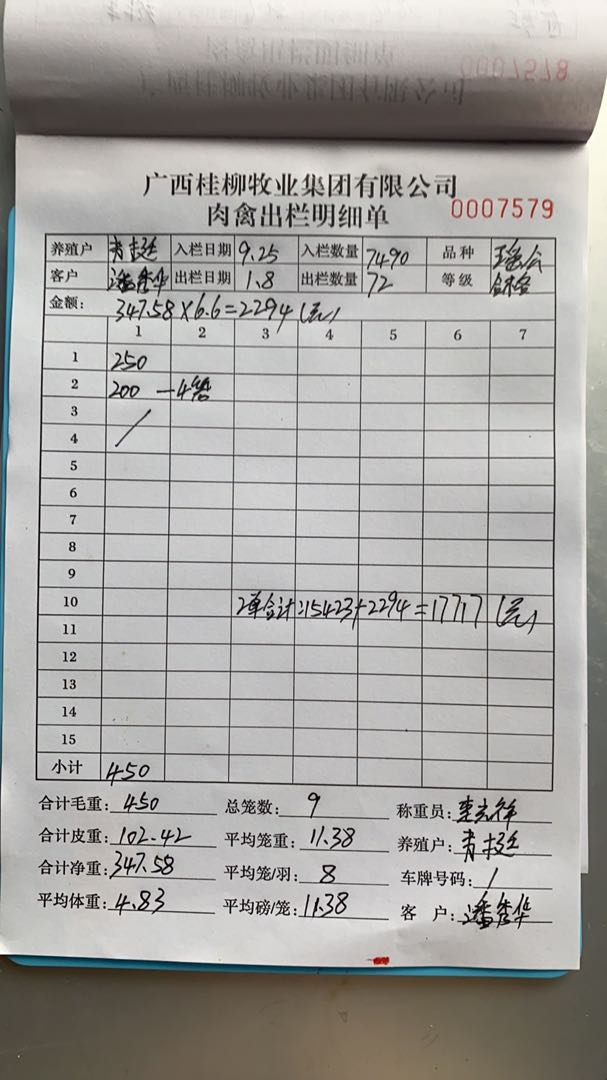 0007578
广西桂柳牧业集团有限公司
肉禽出栏明细单 0007579
养殖户 入栏日期 9.25 入栏数量 7490 品种 瑶公
客户 潘秀华 出栏日期 1.8 出栏数量 72 等级 合格
金额: 347.58×6.6=2294(元)
1 2 3 4 5 6 7
1 250
2 200 —4笼
3
4
5
6
7
8
9
10 2单合计:15423+2294=17717(元)
11
12
13
14
15
小计 450
合计毛重: 450 总笼数: 9 称重员:
合计皮重: 102.42 平均笼重: 11.38 养殖户:
合计净重: 347.58 平均笼/羽: 8 车牌号码: /
平均体重: 4.83 平均磅/笼: 11.38 客户: 潘秀华